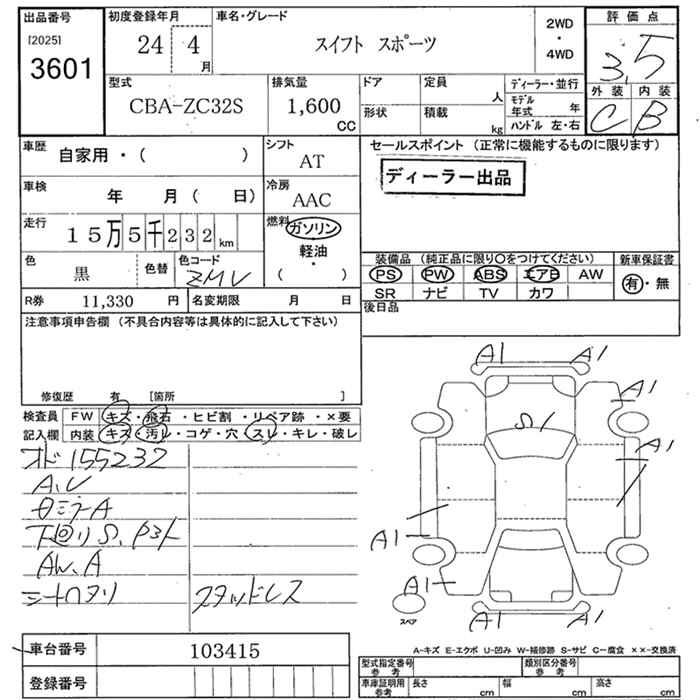 出品番号
[2025]
3601
初度登録年月
24 4 月
車名・グレード
スイフト スポーツ
2WD
・
4WD
評価点
3.5
外装 内装
C B
型式
CBA-ZC32S
排気量
1,600
CC
ドア
形状
定員
人
積載
kg
ディーラー・並行
モデル年式 年
ハンドル 左・右
車歴
自家用・( )
シフト
AT
車検
年 月( 日)
冷房
AAC
走行
15万5千232km
燃料
ガソリン
軽油
・
( )
色
黒
色替
色コード
ZMV
R券 11,330 円
名変期限 月 日
セールスポイント (正常に機能するものに限ります)
ディーラー出品
装備品 (純正品に限り○をつけてください)
新車保証書
PS PW ABS エアB AW
有・無
SR ナビ TV カワ
後日品
注意事項申告欄 (不具合内容等は具体的に記入して下さい)
修復歴 有 [箇所 ]
検査員
記入欄
FW キズ・飛石・ヒビ割・リペア跡・×要
内装 キズ・汚レ・コゲ・穴・スレ・キレ・破レ
メド 155232
A.V
日ミラーA
下回りS、Pヨト
AW.A
シートロクリ
スタッドレス
A1 A1
A1
S1
A1
A1
A1
A1 A1
スペア
A-キズ E-エクボ U-凹み W-補修跡 S-サビ C-腐食 ××-交換済
車台番号 103415
登録番号
型式指定番号
参考
類別区分番号
参考
車庫証明用
参考
長さ cm 幅 cm 高さ cm